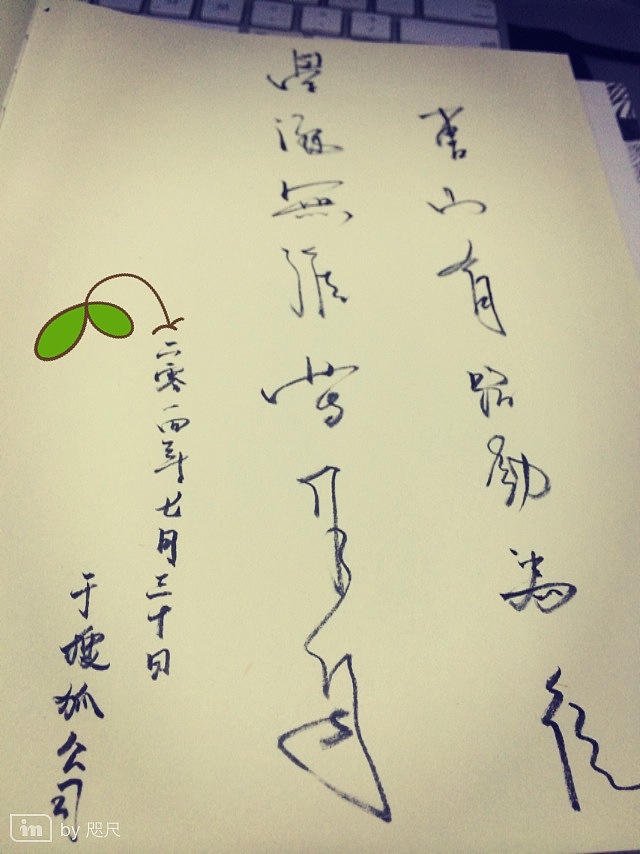 書山有路勤為徑
學海無涯苦作舟
二零一四年七月三十日
于搜狐公司
in by 咫尺